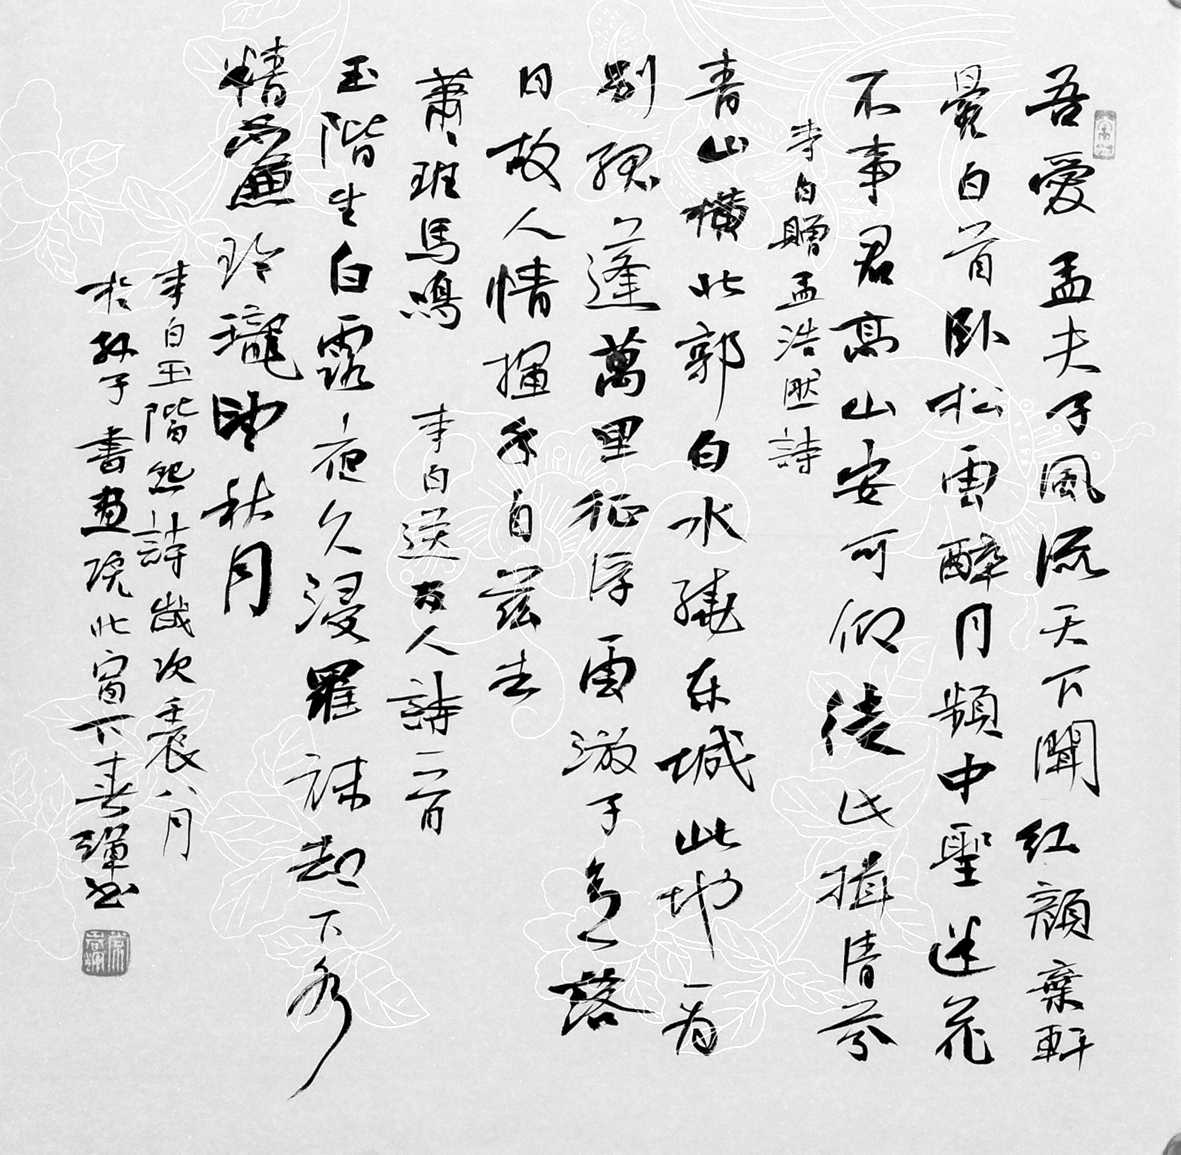 吾愛孟夫子風流天下聞紅顏棄軒
冕白首卧松雲醉月頻中聖迷花
不事君高山安可仰徒此揖清芬
李白贈孟浩然詩
青山橫北郭白水繞東城此地一為
别孤蓬萬里征浮雲游子意落
日故人情揮手自兹去
蕭蕭班馬鳴 李白送友人詩一首
玉階生白露夜久浸羅袜却下水
精簾玲瓏望秋月
李白玉階怨詩歲次壬辰八月
於孙子書畫院北窗下春輝書